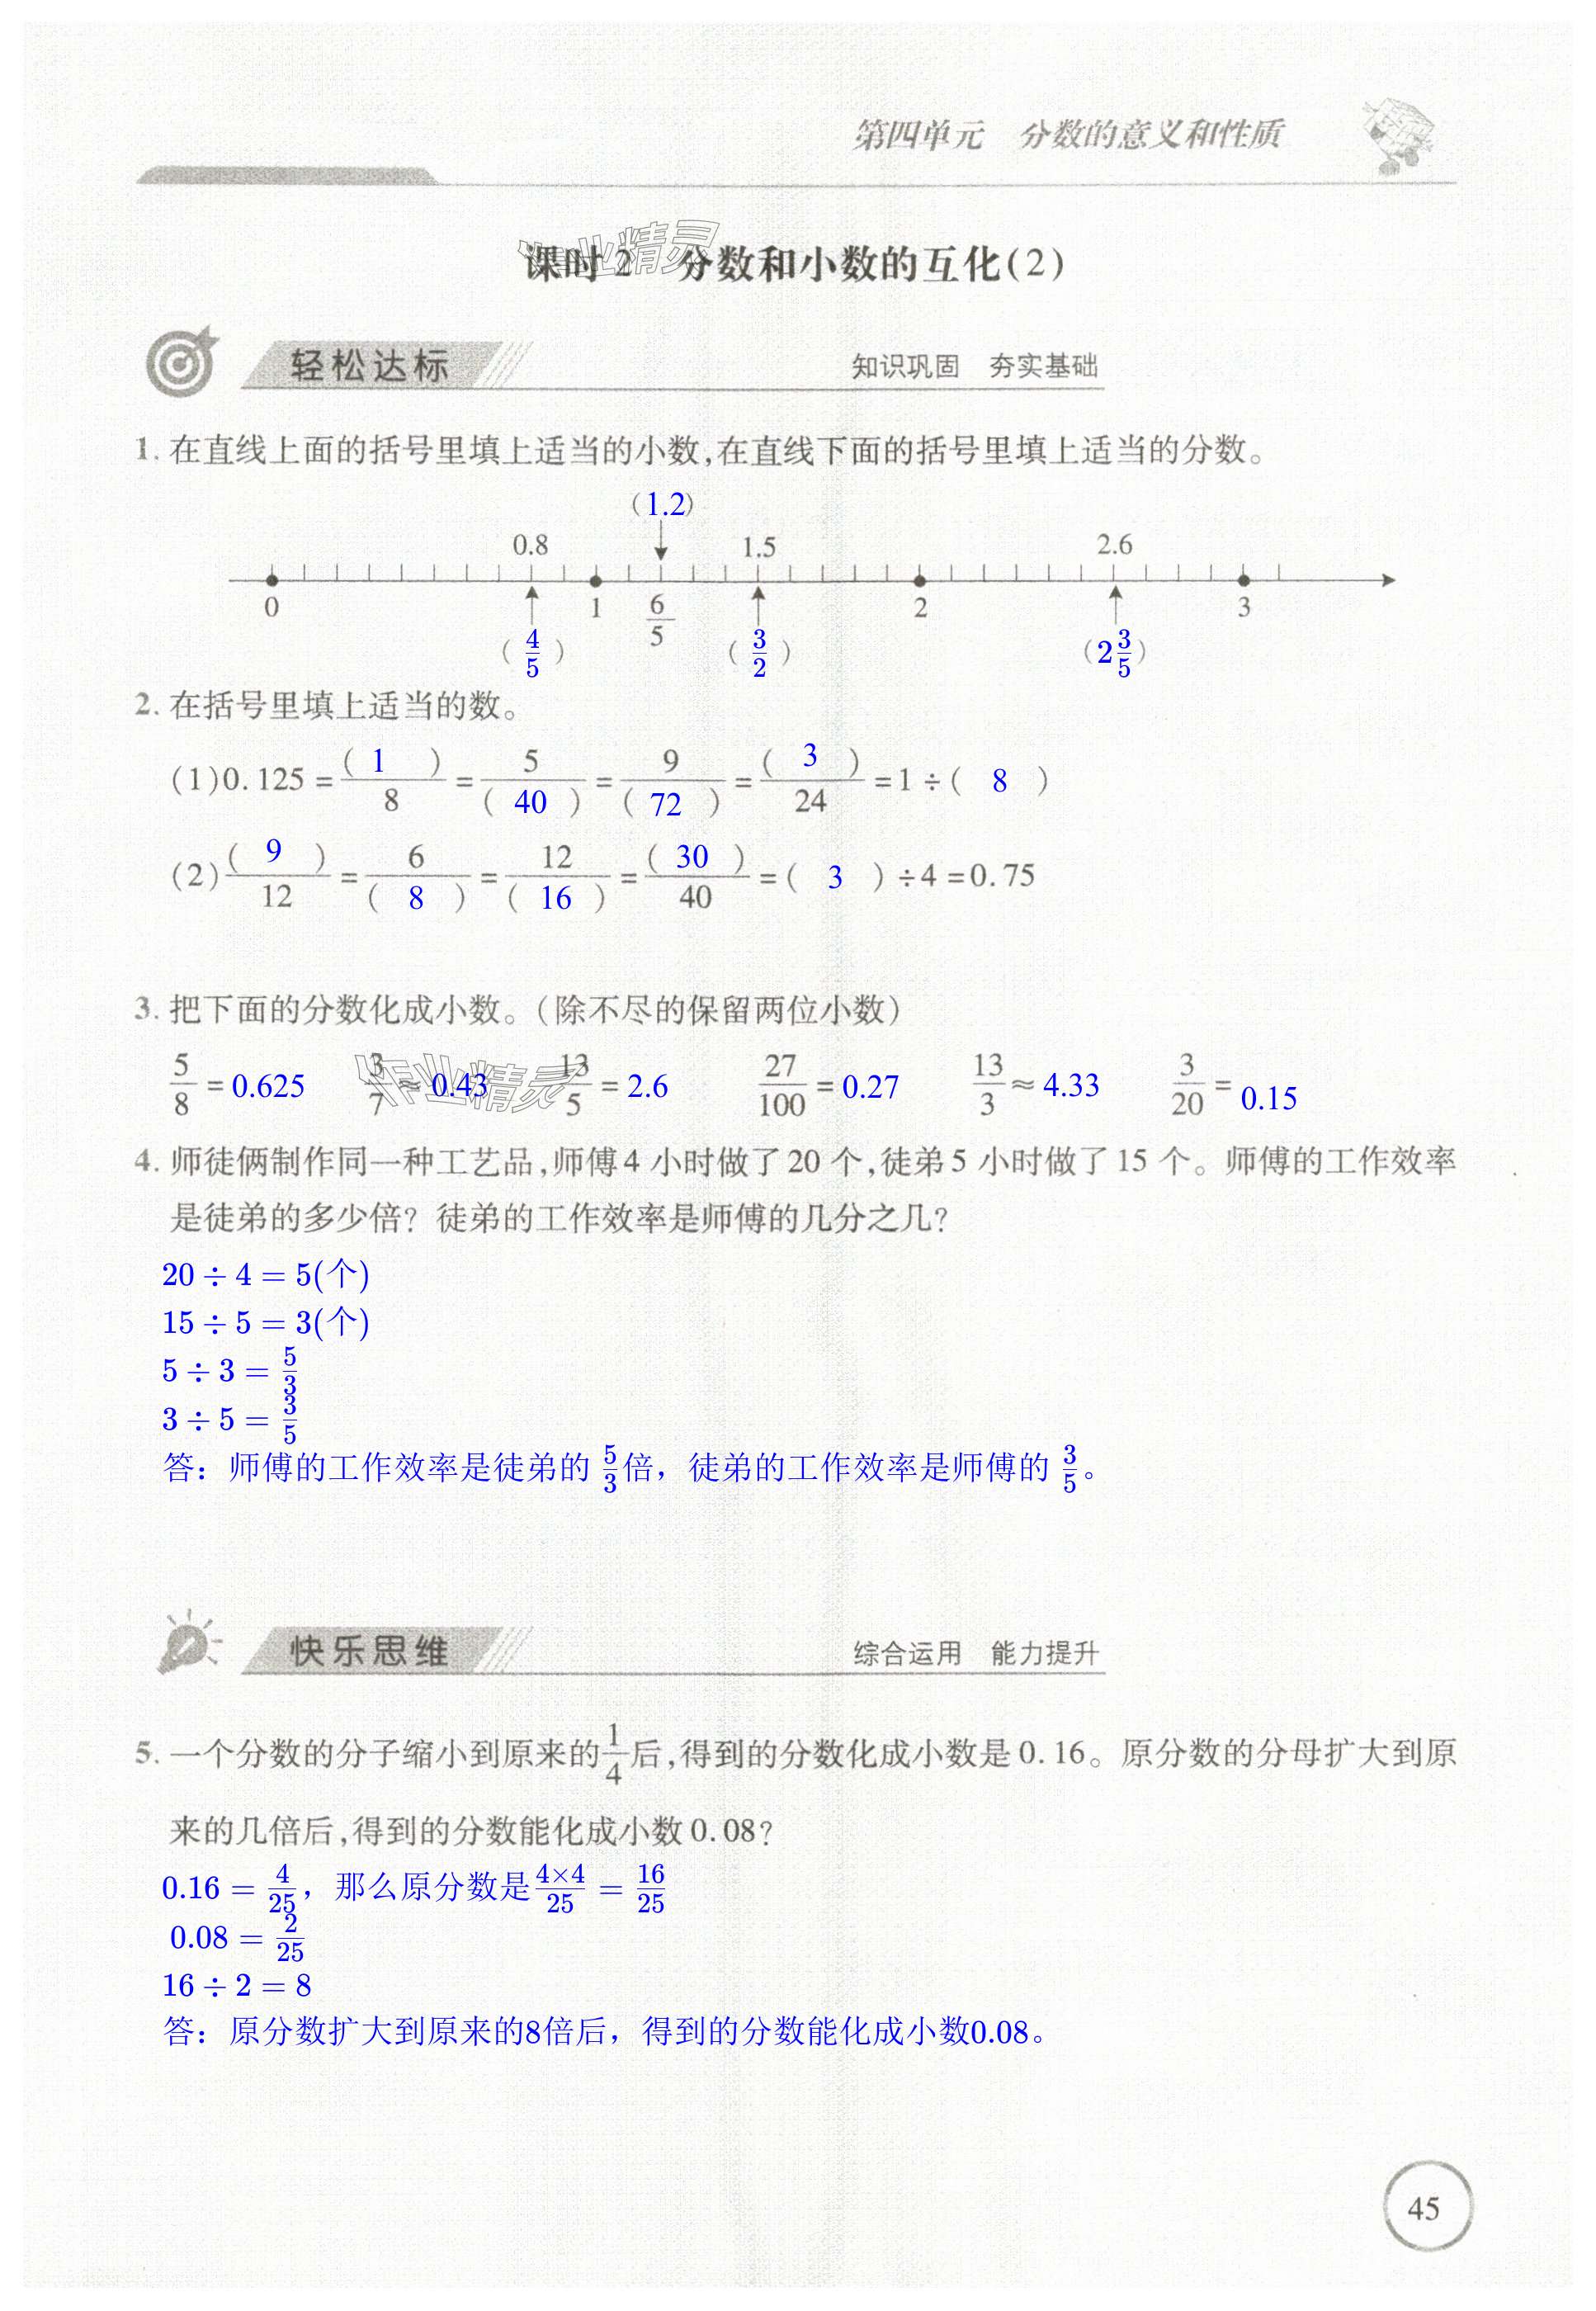 第四单元 分数的意义和性质
作业精灵
课时2 分数和小数的互化(2)
轻松达标 知识巩固 夯实基础
1. 在直线上面的括号里填上适当的小数,在直线下面的括号里填上适当的分数。
(1.2)
0.8 1.5 2.6
0 1 6/5 2 3
( 4/5 ) ( 3/2 ) (2 3/5)
2. 在括号里填上适当的数。
(1)0.125 = ( 1 )/8 = 5/( 40 ) = 9/( 72 ) = ( 3 )/24 = 1 ÷ ( 8 )
(2)( 9 )/12 = 6/( 8 ) = 12/( 16 ) = ( 30 )/40 = ( 3 ) ÷ 4 = 0.75
3. 把下面的分数化成小数。(除不尽的保留两位小数)
5/8 = 0.625 3/7 ≈ 0.43 13/5 = 2.6 27/100 = 0.27 13/3 ≈ 4.33 3/20 = 0.15
作业精灵
4. 师徒俩制作同一种工艺品,师傅4 小时做了20 个,徒弟5 小时做了15 个。师傅的工作效率
是徒弟的多少倍? 徒弟的工作效率是师傅的几分之几?
20 ÷ 4 = 5(个)
15 ÷ 5 = 3(个)
5 ÷ 3 = 5/3
3 ÷ 5 = 3/5
答：师傅的工作效率是徒弟的 5/3倍，徒弟的工作效率是师傅的 3/5。
快乐思维 综合运用 能力提升
5. 一个分数的分子缩小到原来的1/4后,得到的分数化成小数是0.16。原分数的分母扩大到原
来的几倍后,得到的分数能化成小数0.08?
0.16 = 4/25，那么原分数是4×4/25 = 16/25
0.08 = 2/25
16 ÷ 2 = 8
答：原分数扩大到原来的8倍后，得到的分数能化成小数0.08。
45